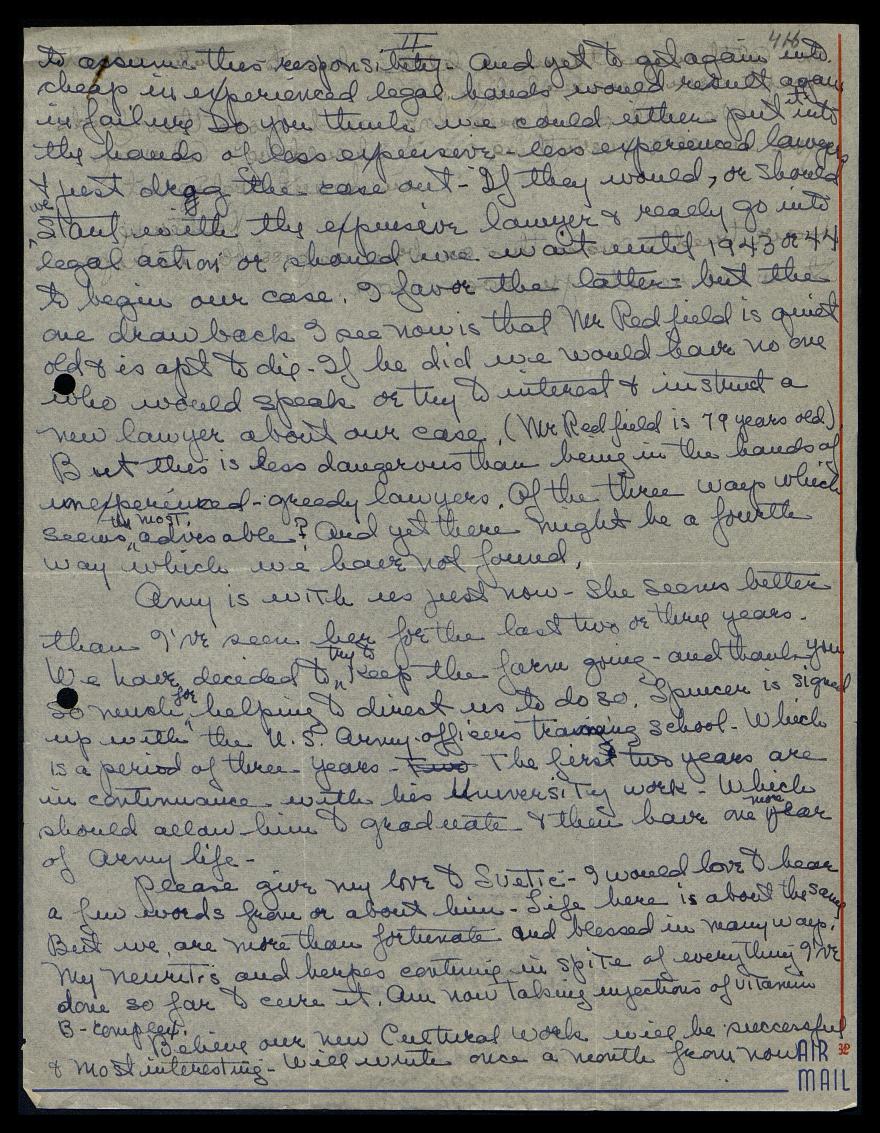 II
416
to assume this responsibility. And yet to get again into
cheap in experienced legal hands would result again
in failure Do you think we could either put it into
the hands of less expensive - less experienced lawyers
& just drag the case out - If they would, or should
we start with the expensive lawyer & really go into
legal action or should we wait until 1943 or 44
to begin our case. I favor the latter - but the
one draw back I see now is that Mr Redfield is quiet
old & is apt to die - If he did we would have no one
who would speak or try to interest & instruct a
new lawyer about our case. (Mr Redfield is 79 years old)
But this is less dangerous than being in the hands of
unexperienced - greedy lawyers. Of the three ways which
seems the most advisable? And yet there might be a fourth
way which we have not found.
Amy is with us just now - she seems better
than I've seen her for the last two or three years.
We have decided to try to keep the farm going - and thank you
so much for helping to direct us to do so. Spencer is signed
up with the U.S. Army officers training school - Which
is a period of three years - Two The first two years are
in continuance with his University work - Which
should allow him to graduate & then have one more year
of Army life -
Please give my love to Svetic - I would love to hear
a few words from or about him - Life here is about the same
But we are more than fortunate and blessed in many ways.
My neuritis and herpes continue in spite of everything I've
done so far to cure it. Am now taking injections of vitamin
B-complex.
Believe our new Cultural Work will be successful
& most interesting - Will write once a month from now
AIR
MAIL
32